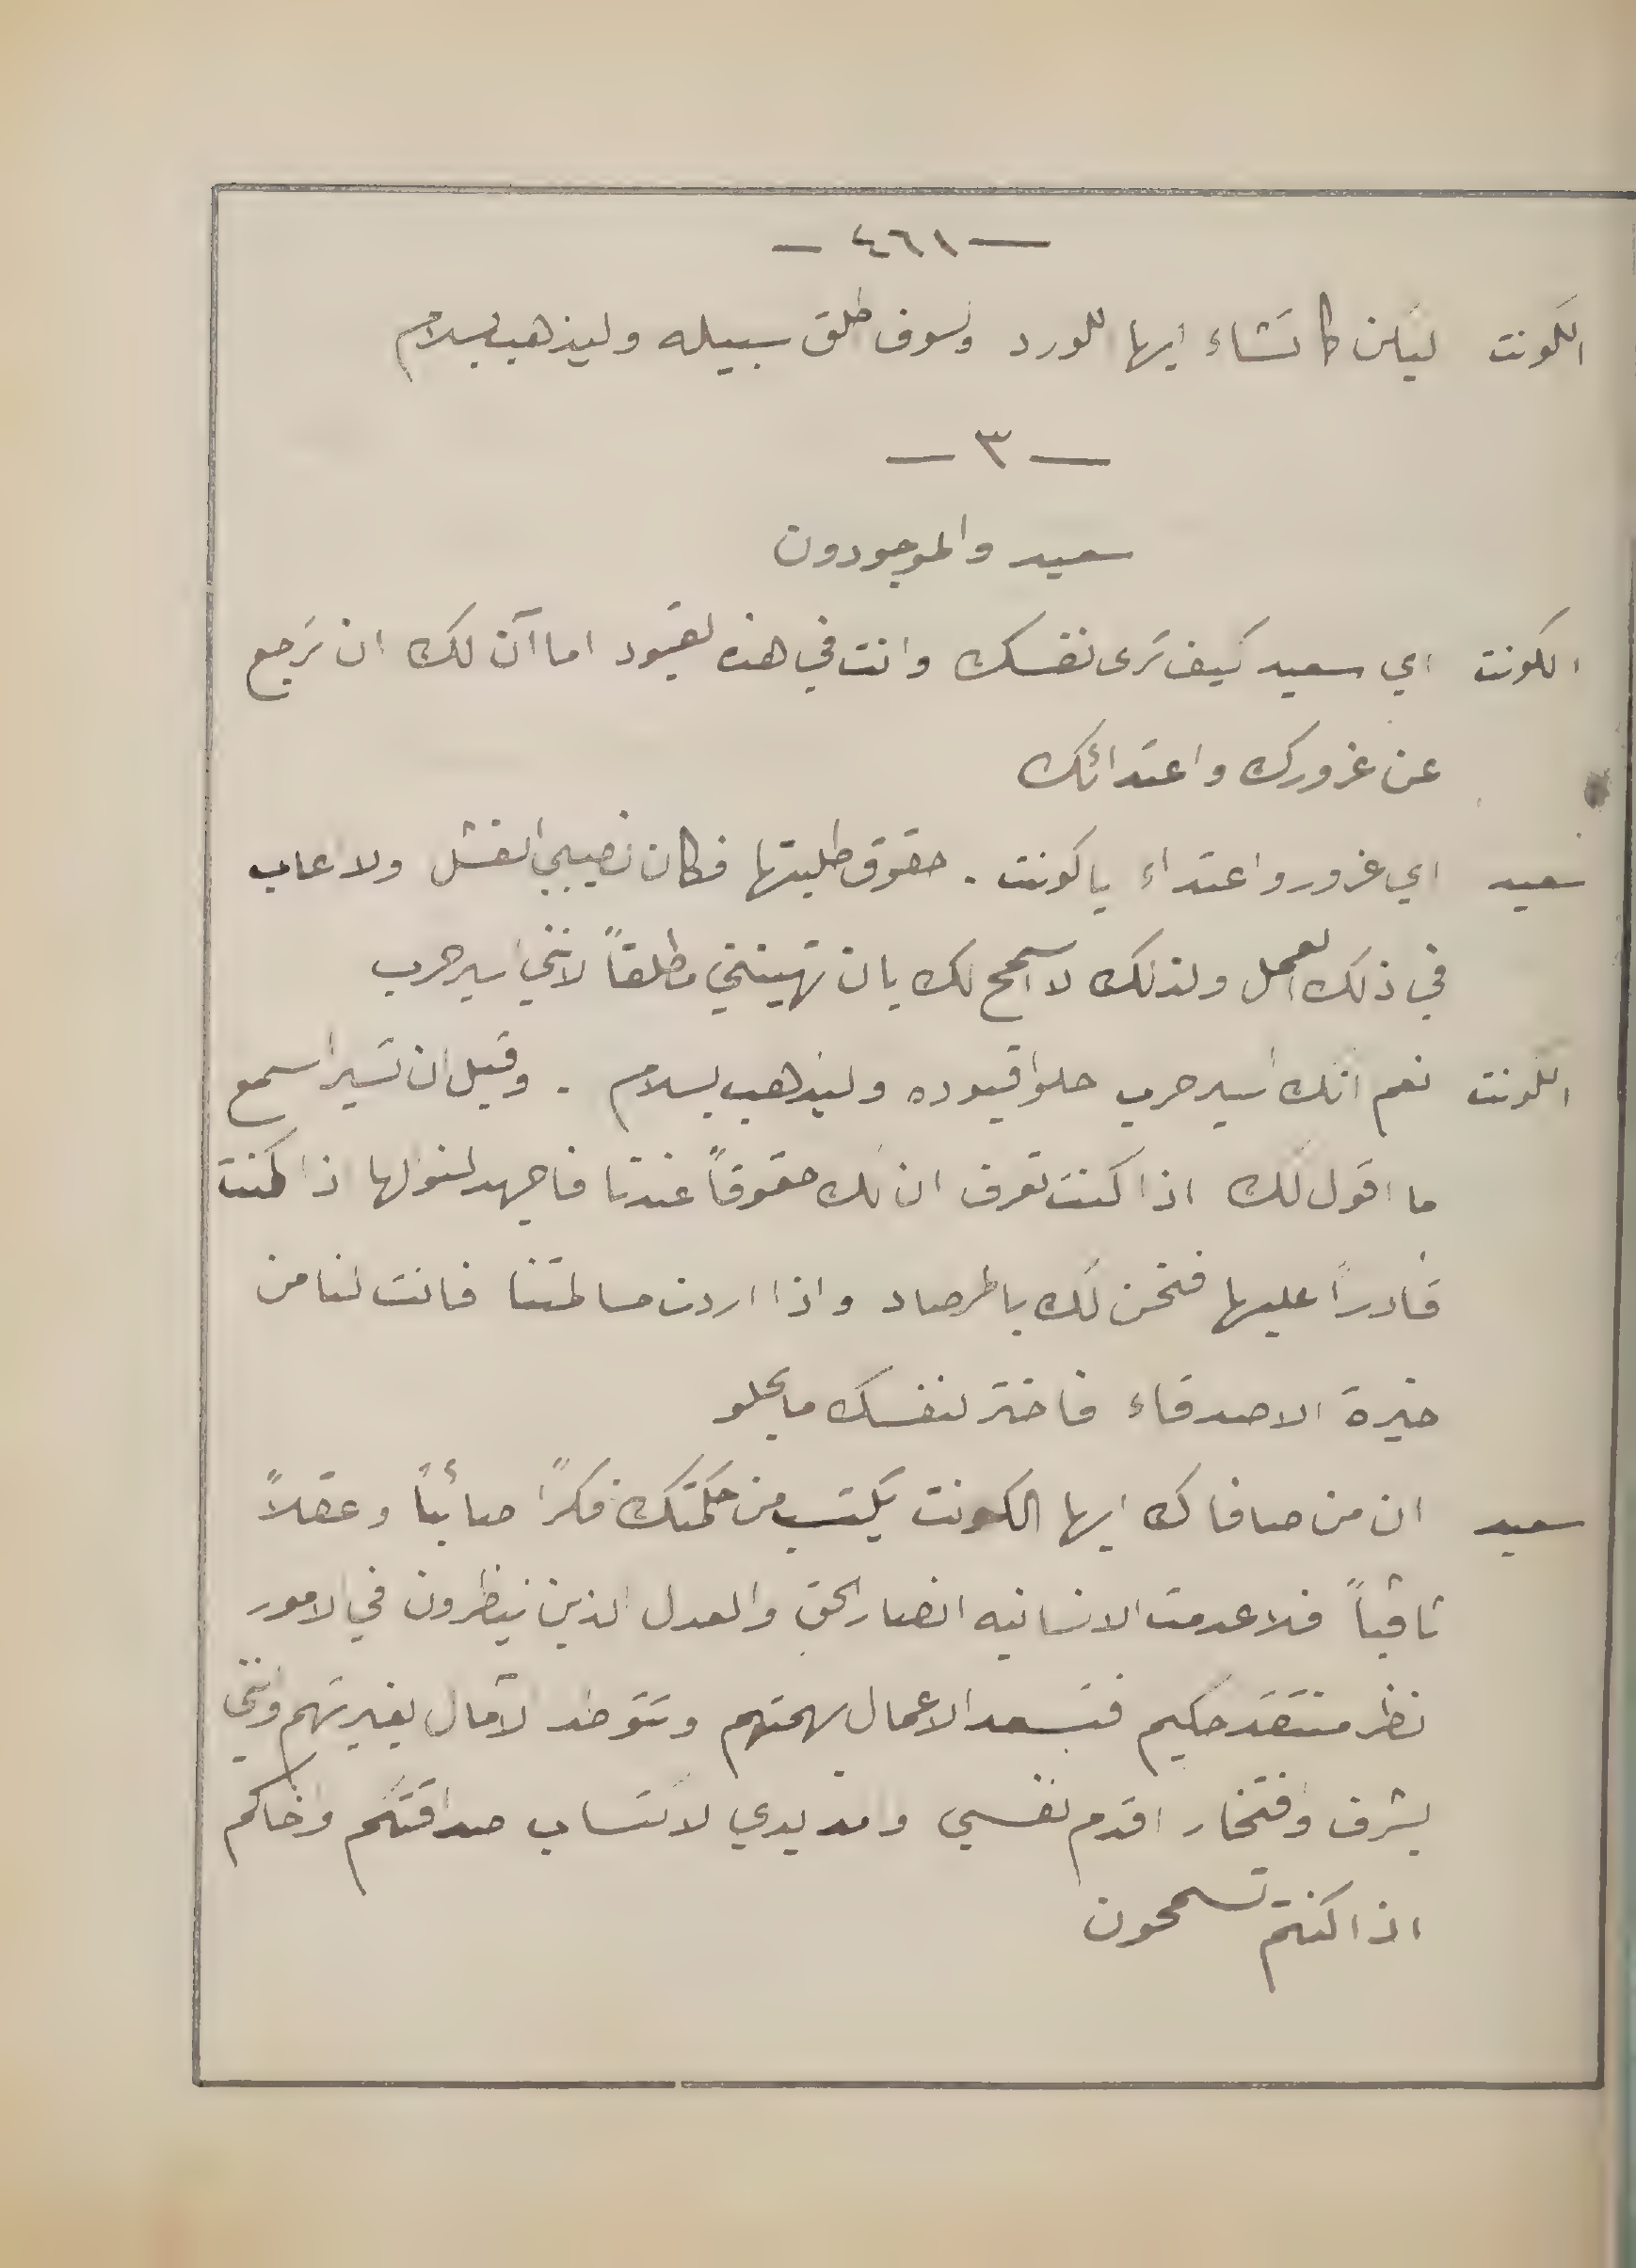 — ٤٦١ —
الكونت ليكن كما تشاء ايها اللورد ولسوف اطلق سبيله وليذهب بسلام
— ٣ —
سعيد والموجودون
الكونت اي سعيد كيف ترى نفسك وانت في هذه القيود اما آن لك ان ترجع
عن غرورك واعتدائك
سعيد اي غرور واعتداء يا كونت . حقوق طلبتها فكان نصيبي الفشل ولا عاب
في ذلك العمل ولذلك لا اسمح لك بان تهينني مطلقاً لانني اسير حرب
الكونت نعم انك اسير حرب حلوا قيوده وليذهب بسلام . وقبل ان تسير اسمع
ما اقول لك اذا كنت تعرف ان لك حقوقاً عندنا فاجهد لنولها اذا كنت
قادراً عليها فنحن لك بالمرصاد واذا اردت مسالمتنا فانت لنا من
خيرة الاصدقاء فاختر لنفسك ما يحلو
سعيد ان من صافاك ايها الكونت يكتسب من حكمتك فكراً صائباً وعقلاً
ثاقباً فلا عدمت الانسانيه انصار الحق والعدل الذين ينظرون في الامور
نظر منتقد حكيم فتسعد الاعمال بهمتهم وتتوطد الآمال بغيرتهم وانني
بشرف وافتخار اقدم نفسي وامد يدي لاكتساب صداقتكم واخاكم
اذا كنتم تسمحون